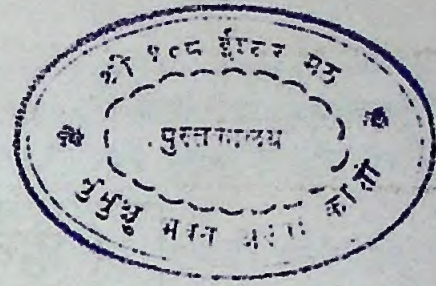 श्री १०८ ईश्वर मठ
पुस्तकालय
मुमुक्षु भवन काशी